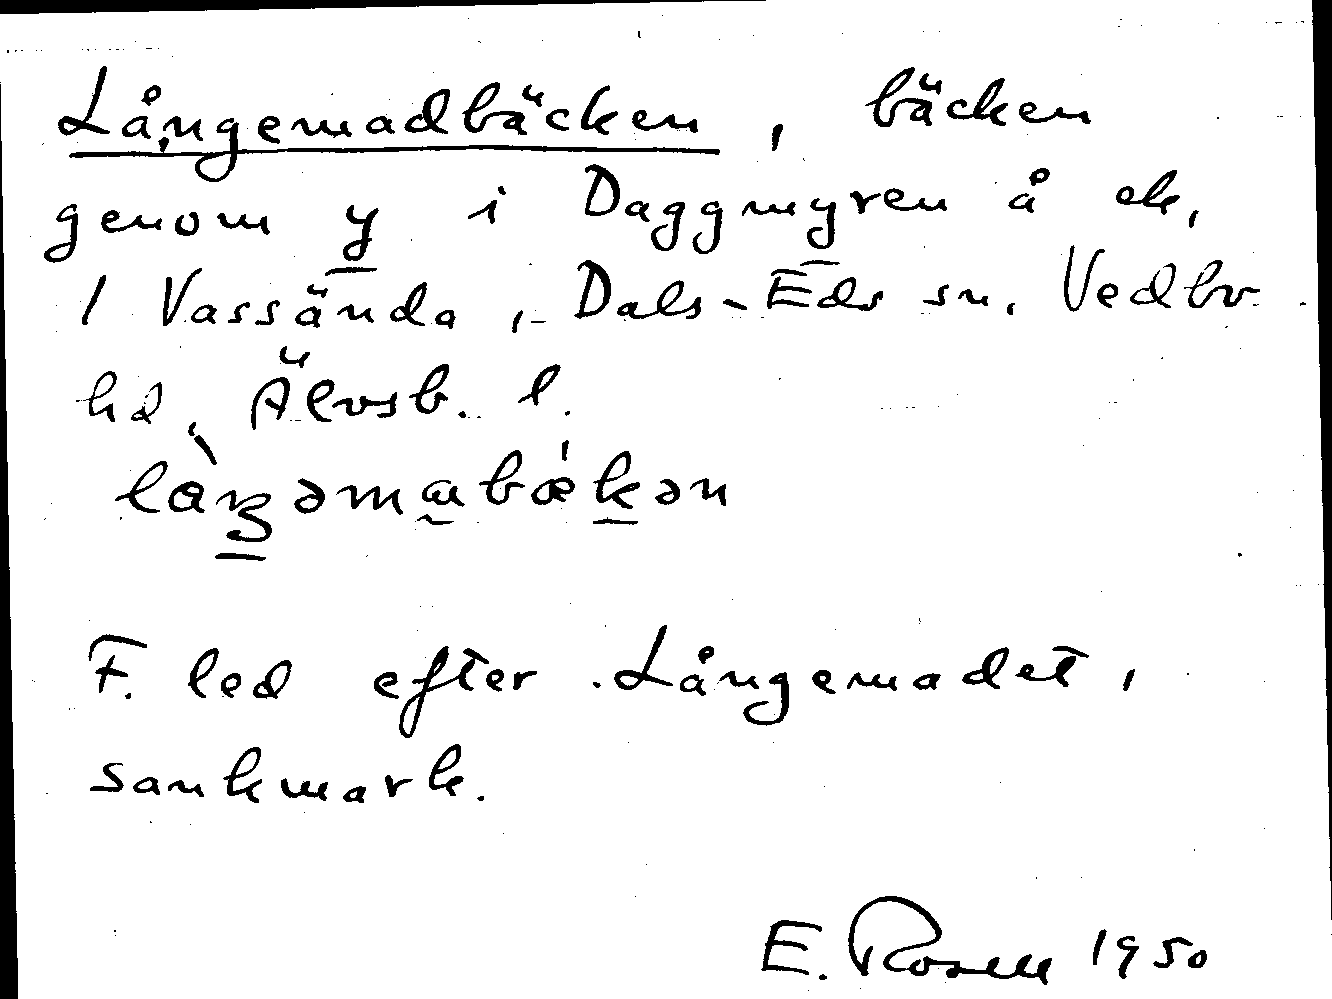 Långemadbäcken, bäcken
genom y i Daggmyren å ek.
1 Vassända, Dals-Eds sn. Vedbo
hd, Älvsb. l.
F. led efter Långemadet,
sankmark.
E. Rosell 1950